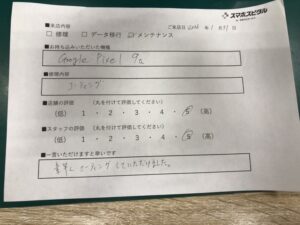 スマホスピタル
■来店内容
ご来店日 2026年1月31日
□修理 □データ移行 ☑メンテナンス
■お持ち込みいただいた機種
Google Pixel 9a
■修理内容
コーティング
■店舗の評価 (丸を付けて評価してください)
(低) 1 ・ 2 ・ 3 ・ 4 ・ 5 (高)
■スタッフの評価 (丸を付けて評価してください)
(低) 1 ・ 2 ・ 3 ・ 4 ・ 5 (高)
■一言いただけますと幸いです
コーティングしていただけました。